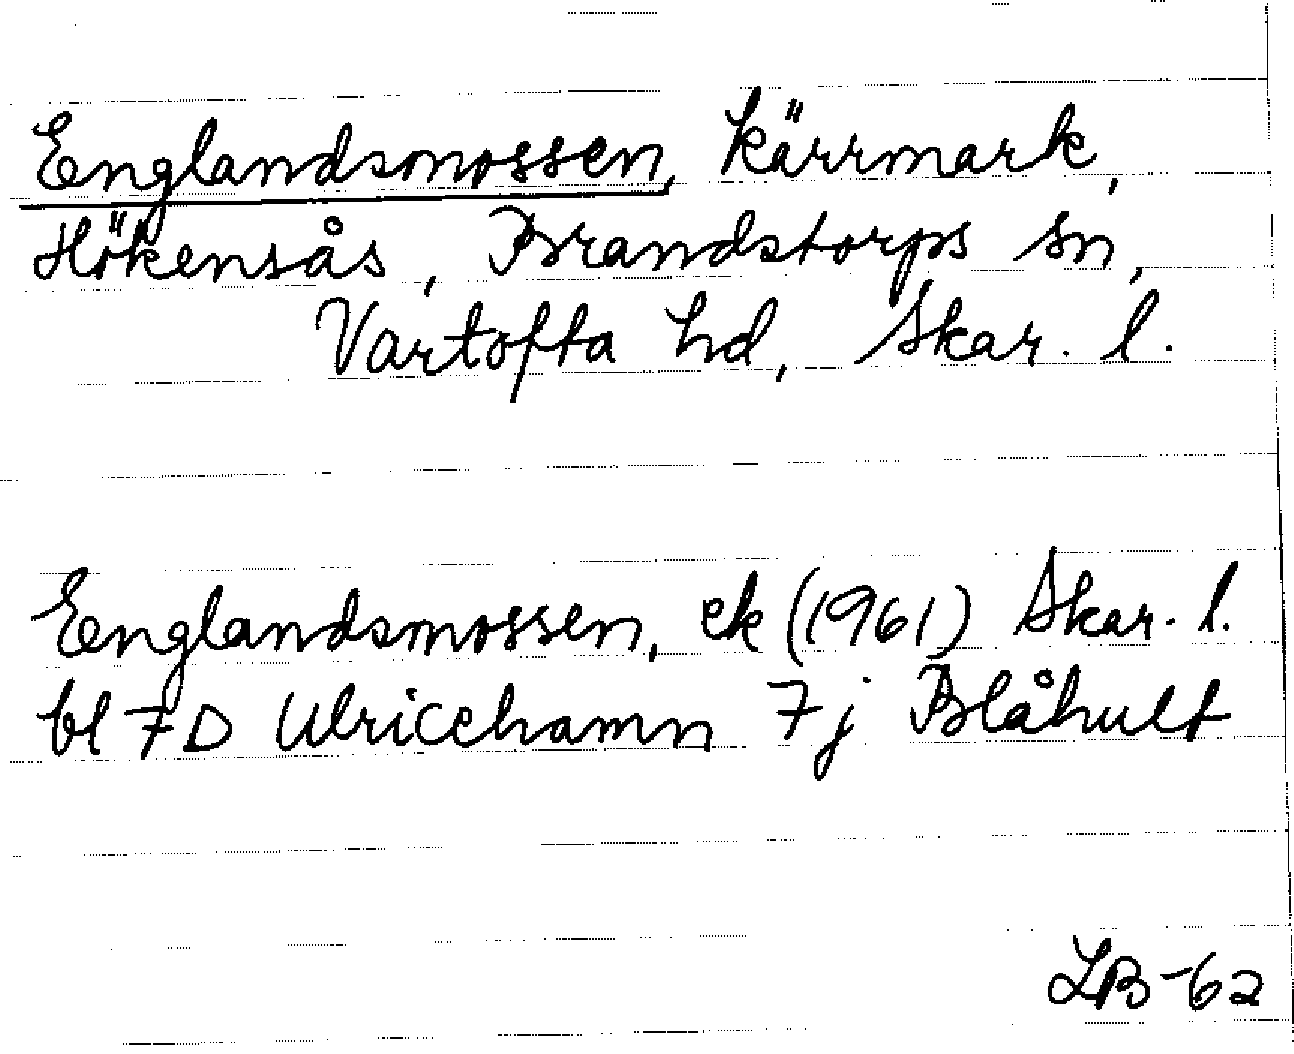 Englandsmossen, kärrmark,
Hökensås, Brandstorps sn,
Vartofta hd, Skar. l.
Englandsmossen, ek (1961) Skar. l.
bl 7D Ulricehamn 7j Blåhult
LB-62